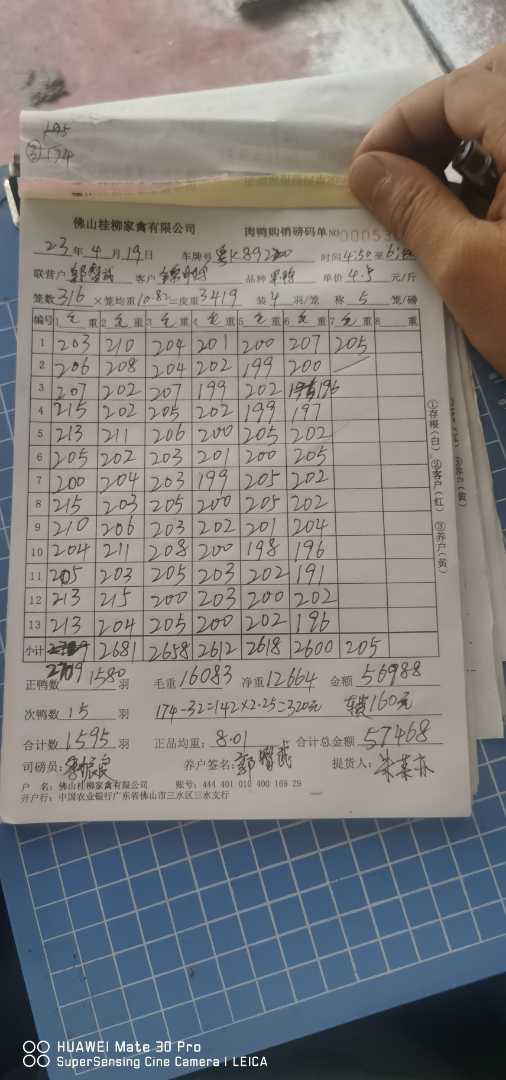 195
③ 174
佛山桂柳家禽有限公司 肉鸭购销磅码单 NO 00053
23年4月19日 车牌号 时间4:50至
联营户 客户 品种 单价4.5元/斤
笼数316×笼均重10.82=皮重3419 装4羽/笼 称5笼/磅
编号 1 毛 重 2 毛 重 3 毛 重 4 毛 重 5 毛 重 6 毛 重 7 毛 重 8 重
1 203 210 204 201 200 207 205
2 206 208 204 202 199 200
3 207 202 207 199 202 196
4 215 202 205 202 199 197
5 213 211 206 200 205 202
6 205 202 203 201 200 205
7 200 204 203 199 205 202
8 215 203 205 200 205 202
9 210 206 203 202 201 204
10 204 211 208 200 198 196
11 205 203 205 203 202 191
12 213 215 200 203 200 202
13 213 204 205 200 202 196
小计 2681 2658 2612 2618 2600 205
2709
正鸭数1580羽 毛重16083 净重12664 金额56988
次鸭数15羽 174-32=142×2.25=320元 160元
合计数1595羽 正品均重:8.01 合计总金额57468
司磅员: 养户签名: 提货人:
户 名:佛山桂柳家禽有限公司 账号:444 401 010 400 169 29
开户行:中国农业银行广东省佛山市三水区三水支行
①存根(白) ②客户(红) ③养户(黄)
HUAWEI Mate 30 Pro
SuperSensing Cine Camera | LEICA